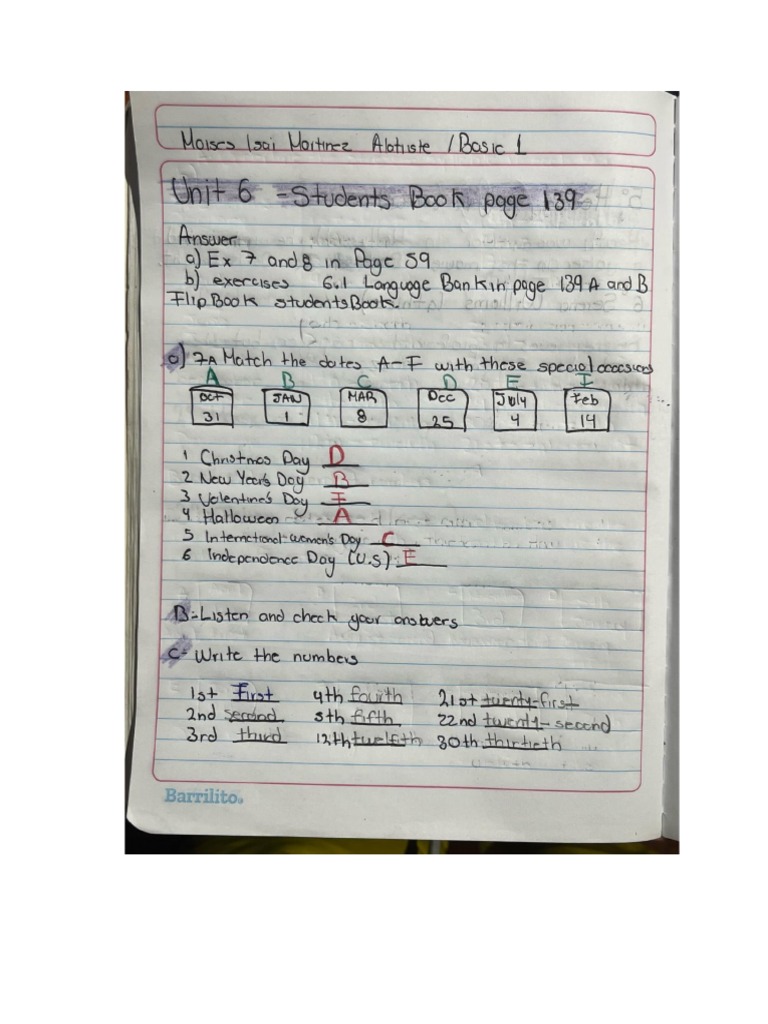 Moises Isai Martinez Alatriste / Basic 1
Unit 6 - Students Book page 139
Answer.
a) Ex 7 and 8 in Page 59
b) exercises 6.1 Language Bank in page 139 A and B
Flip Book students Book.
a) 7A Match the dates A-F with these special occasions
A B C D E F
OCT JAN MAR Dec July Feb
31 1 8 25 4 14
1 Christmas Day D
2 New Year's Day B
3 Valentine's Day F
4 Halloween A
5 International women's Day C
6 Independence Day (U.S) E
B- Listen and check your answers
C- Write the numbers
1st First 4th fourth 21st twenty-first
2nd second 5th fifth 22nd twenty-second
3rd third 12th twelfth 30th thirtieth
Barrilito.